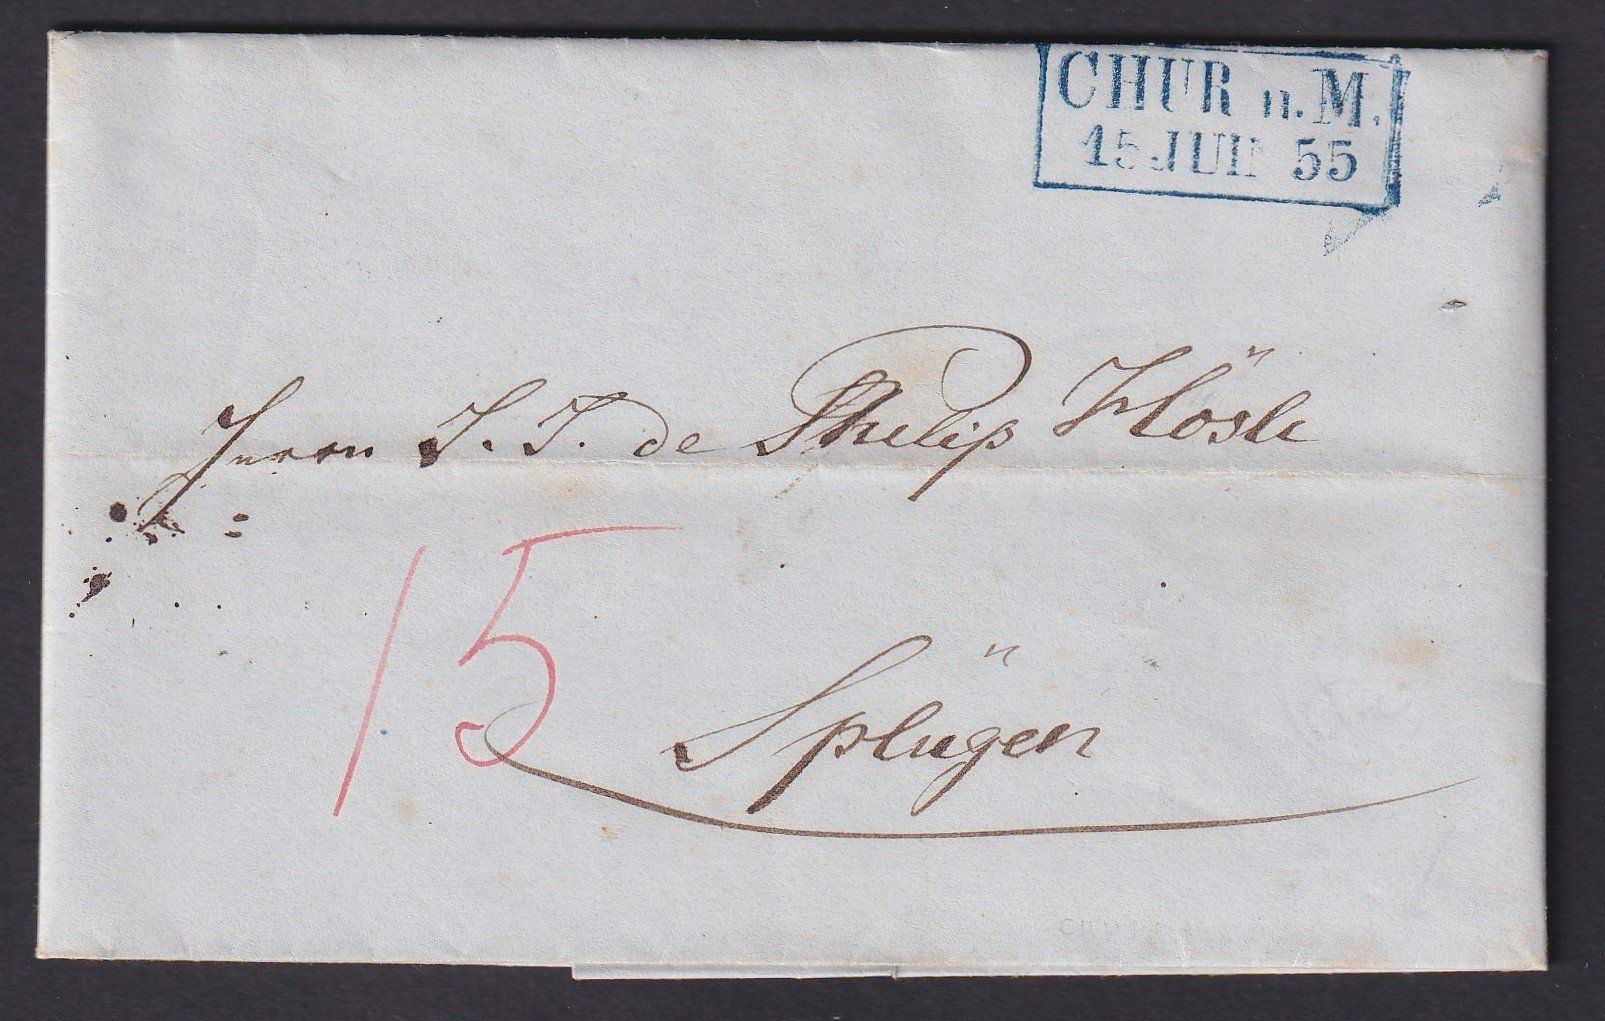 CHUR n. M.
15 JUN 55
Herrn J. J. de Philip Hösli
15
Splügen